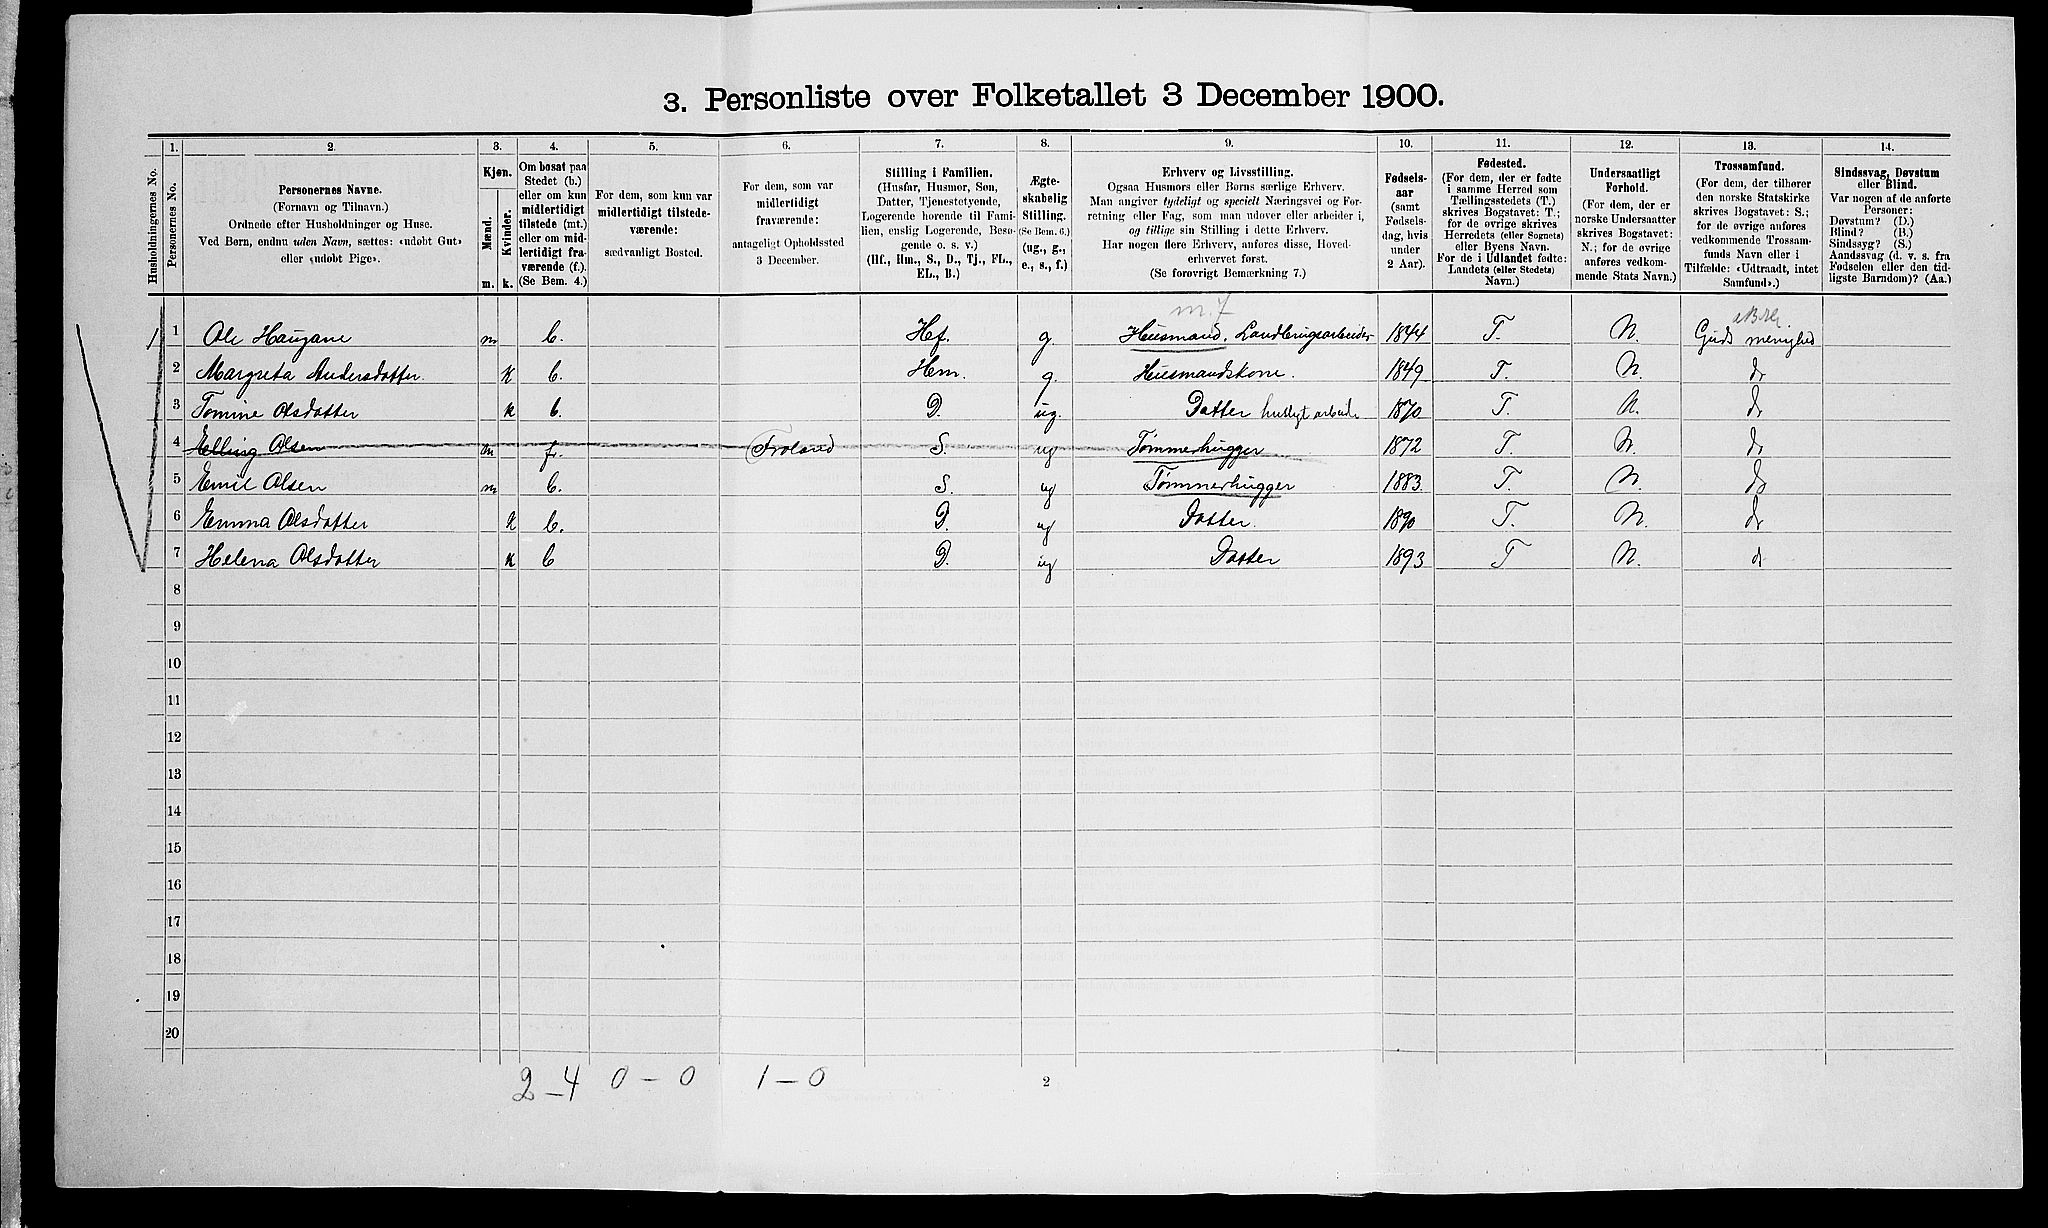 3. Personliste over Folketallet 3 December 1900.
1. 2. 3. 4. 5. 6. 7. 8. 9. 10. 11. 12. 13. 14.
Husholdningernes No.
Personernes No.
Personernes Navne.
(Fornavn og Tilnavn.)
Ordnede efter Husholdninger og Huse.
Ved Børn, endnu uden Navn, sættes: «udøbt Gut»
eller «udøbt Pige».
Kjøn.
Mænd.
Kvinder.
m. k.
Om bosat paa
Stedet (b.)
eller om kun
midlertidigt
tilstede (mt.)
eller om mid-
lertidigt fra-
værende (f.).
(Se Bem. 4.)
For dem, som kun var
midlertidigt tilstede-
værende:
sædvanligt Bosted.
For dem, som var
midlertidigt
fraværende:
antageligt Opholdssted
3 December.
Stilling i Familien.
(Husfar, Husmor, Søn,
Datter, Tjenestetyende,
Logerende hørende til Fami-
lien, enslig Logerende, Besø-
gende o. s. v.)
(Hf., Hm., S., D., Tj., FL.,
EL., B.)
Ægte-
skabelig
Stilling.
(Se Bem. 6.)
(ug., g.,
e., s., f.)
Erhverv og Livsstilling.
Ogsaa Husmors eller Børns særlige Erhverv.
Man angiver tydeligt og specielt Næringsvei og For-
retning eller Fag, som man udøver eller arbeider i,
og tillige sin Stilling i dette Erhverv.
Har nogen flere Erhverv, anføres disse, Hoved-
erhvervet først.
(Se forøvrigt Bemærkning 7.)
Fødsels-
aar
(samt
Fødsels-
dag, hvis
under
2 Aar).
Fødested.
(For dem, der er fødte
i samme Herred som
Tællingsstedets (T.)
skrives Bogstavet: T.;
for de øvrige skrives
Herredets (eller Sognets)
eller Byens Navn.
For de i Udlandet fødte:
Landets (eller Stedets)
Navn.)
Undersaatligt
Forhold.
(For dem, der er
norske Undersaatter
skrives Bogstavet:
N.; for de øvrige
anføres vedkom-
mende Stats Navn.)
Trossamfund.
(For dem, der tilhører
den norske Statskirke
skrives Bogstavet: S.;
for de øvrige anføres
vedkommende Trossam-
funds Navn eller i
Tilfælde: «Udtraadt, intet
Samfund».)
Sindssvag, Døvstum
eller Blind.
Var nogen af de anførte
Personer:
Døvstum? (D.)
Blind? (B.)
Sindssyg? (S.)
Aandssvag (d. v. s. fra
Fødselen eller den tid-
ligste Barndom)? (Aa.)
m. 7
1 1 Ole Haugane m b. Hf. g. Husmand, Landbrugsarbeider 1844 T. N. Guds menighed
2 Margreta Andersdatter. k b. Hm. g. Husmandskone. 1849 T. N. do
3 Tomine Olsdatter k b. D. ug. Datter husligt arbeide 1870 T. N. do
4 Elling Olsen m f. Froland S. ug Tømmerhugger 1872 T. N. do
5 Emil Olsen m b. S. ug Tømmerhugger 1883. T. N. do
6 Emma Olsdatter k b. D. ug Datter. 1890 T. N. do
7 Helena Olsdatter k b D. ug Datter 1893 T N. do
8
9
10
11
12
13
14
15
16
17
18
19
20
2-4 0-0 1-0
2